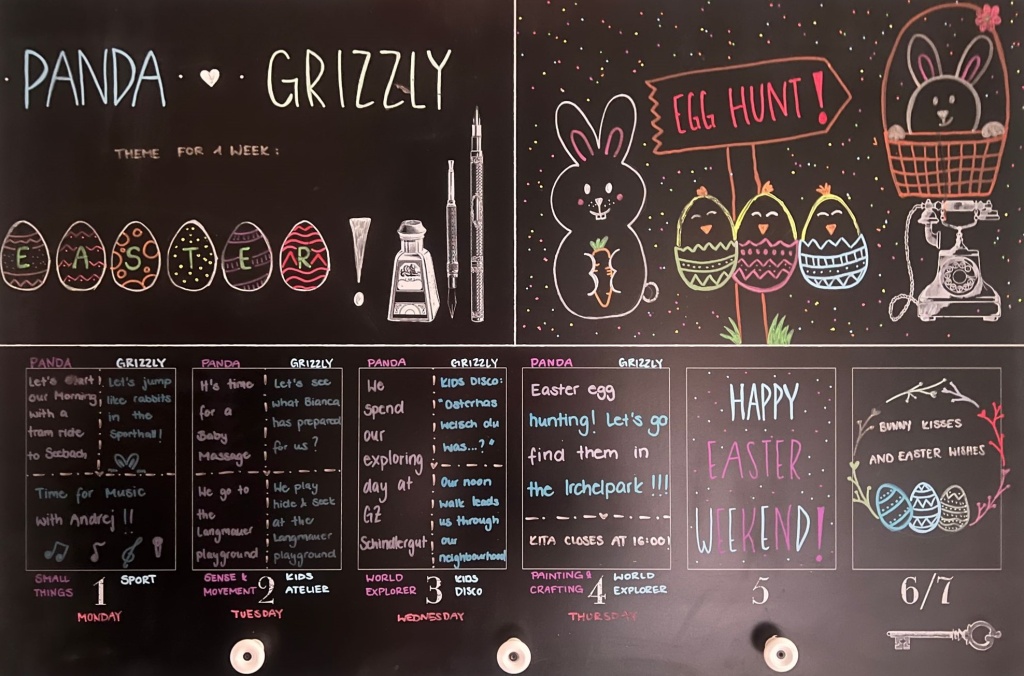 PANDA · ♥ · GRIZZLY
THEME FOR A WEEK:
EASTER!
EGG HUNT!
PANDA GRIZZLY
Let's start
our Morning
with a
tram ride
to Seebach
Let's jump
like rabbits
in the
Sporthall!
Time for Music
with Andrej !!
SMALL
THINGS
1
SPORT
MONDAY
PANDA GRIZZLY
It's time
for a
Baby
Massage
Let's see
what Bianca
has prepared
for us?
We go to
the
Langmauer
playground
We play
hide & seek
at the
Langmauer
playground
SENSE &
MOVEMENT
2
KIDS
ATELIER
TUESDAY
PANDA GRIZZLY
We
spend
our
exploring
day at
GZ
Schindlergut
KIDS DISCO:
"Osterhas
weisch du
was...?"
Our noon
walk leads
us through
our
neighbourhood
WORLD
EXPLORER
3
KIDS
DISCO
WEDNESDAY
PANDA GRIZZLY
Easter egg
hunting! Let's go
find them in
the Irchelpark !!!
KITA CLOSES AT 16:00!
PAINTING &
CRAFTING
4
WORLD
EXPLORER
THURSDAY
HAPPY
EASTER
WEEKEND!
5
BUNNY KISSES
AND EASTER WISHES
6/7